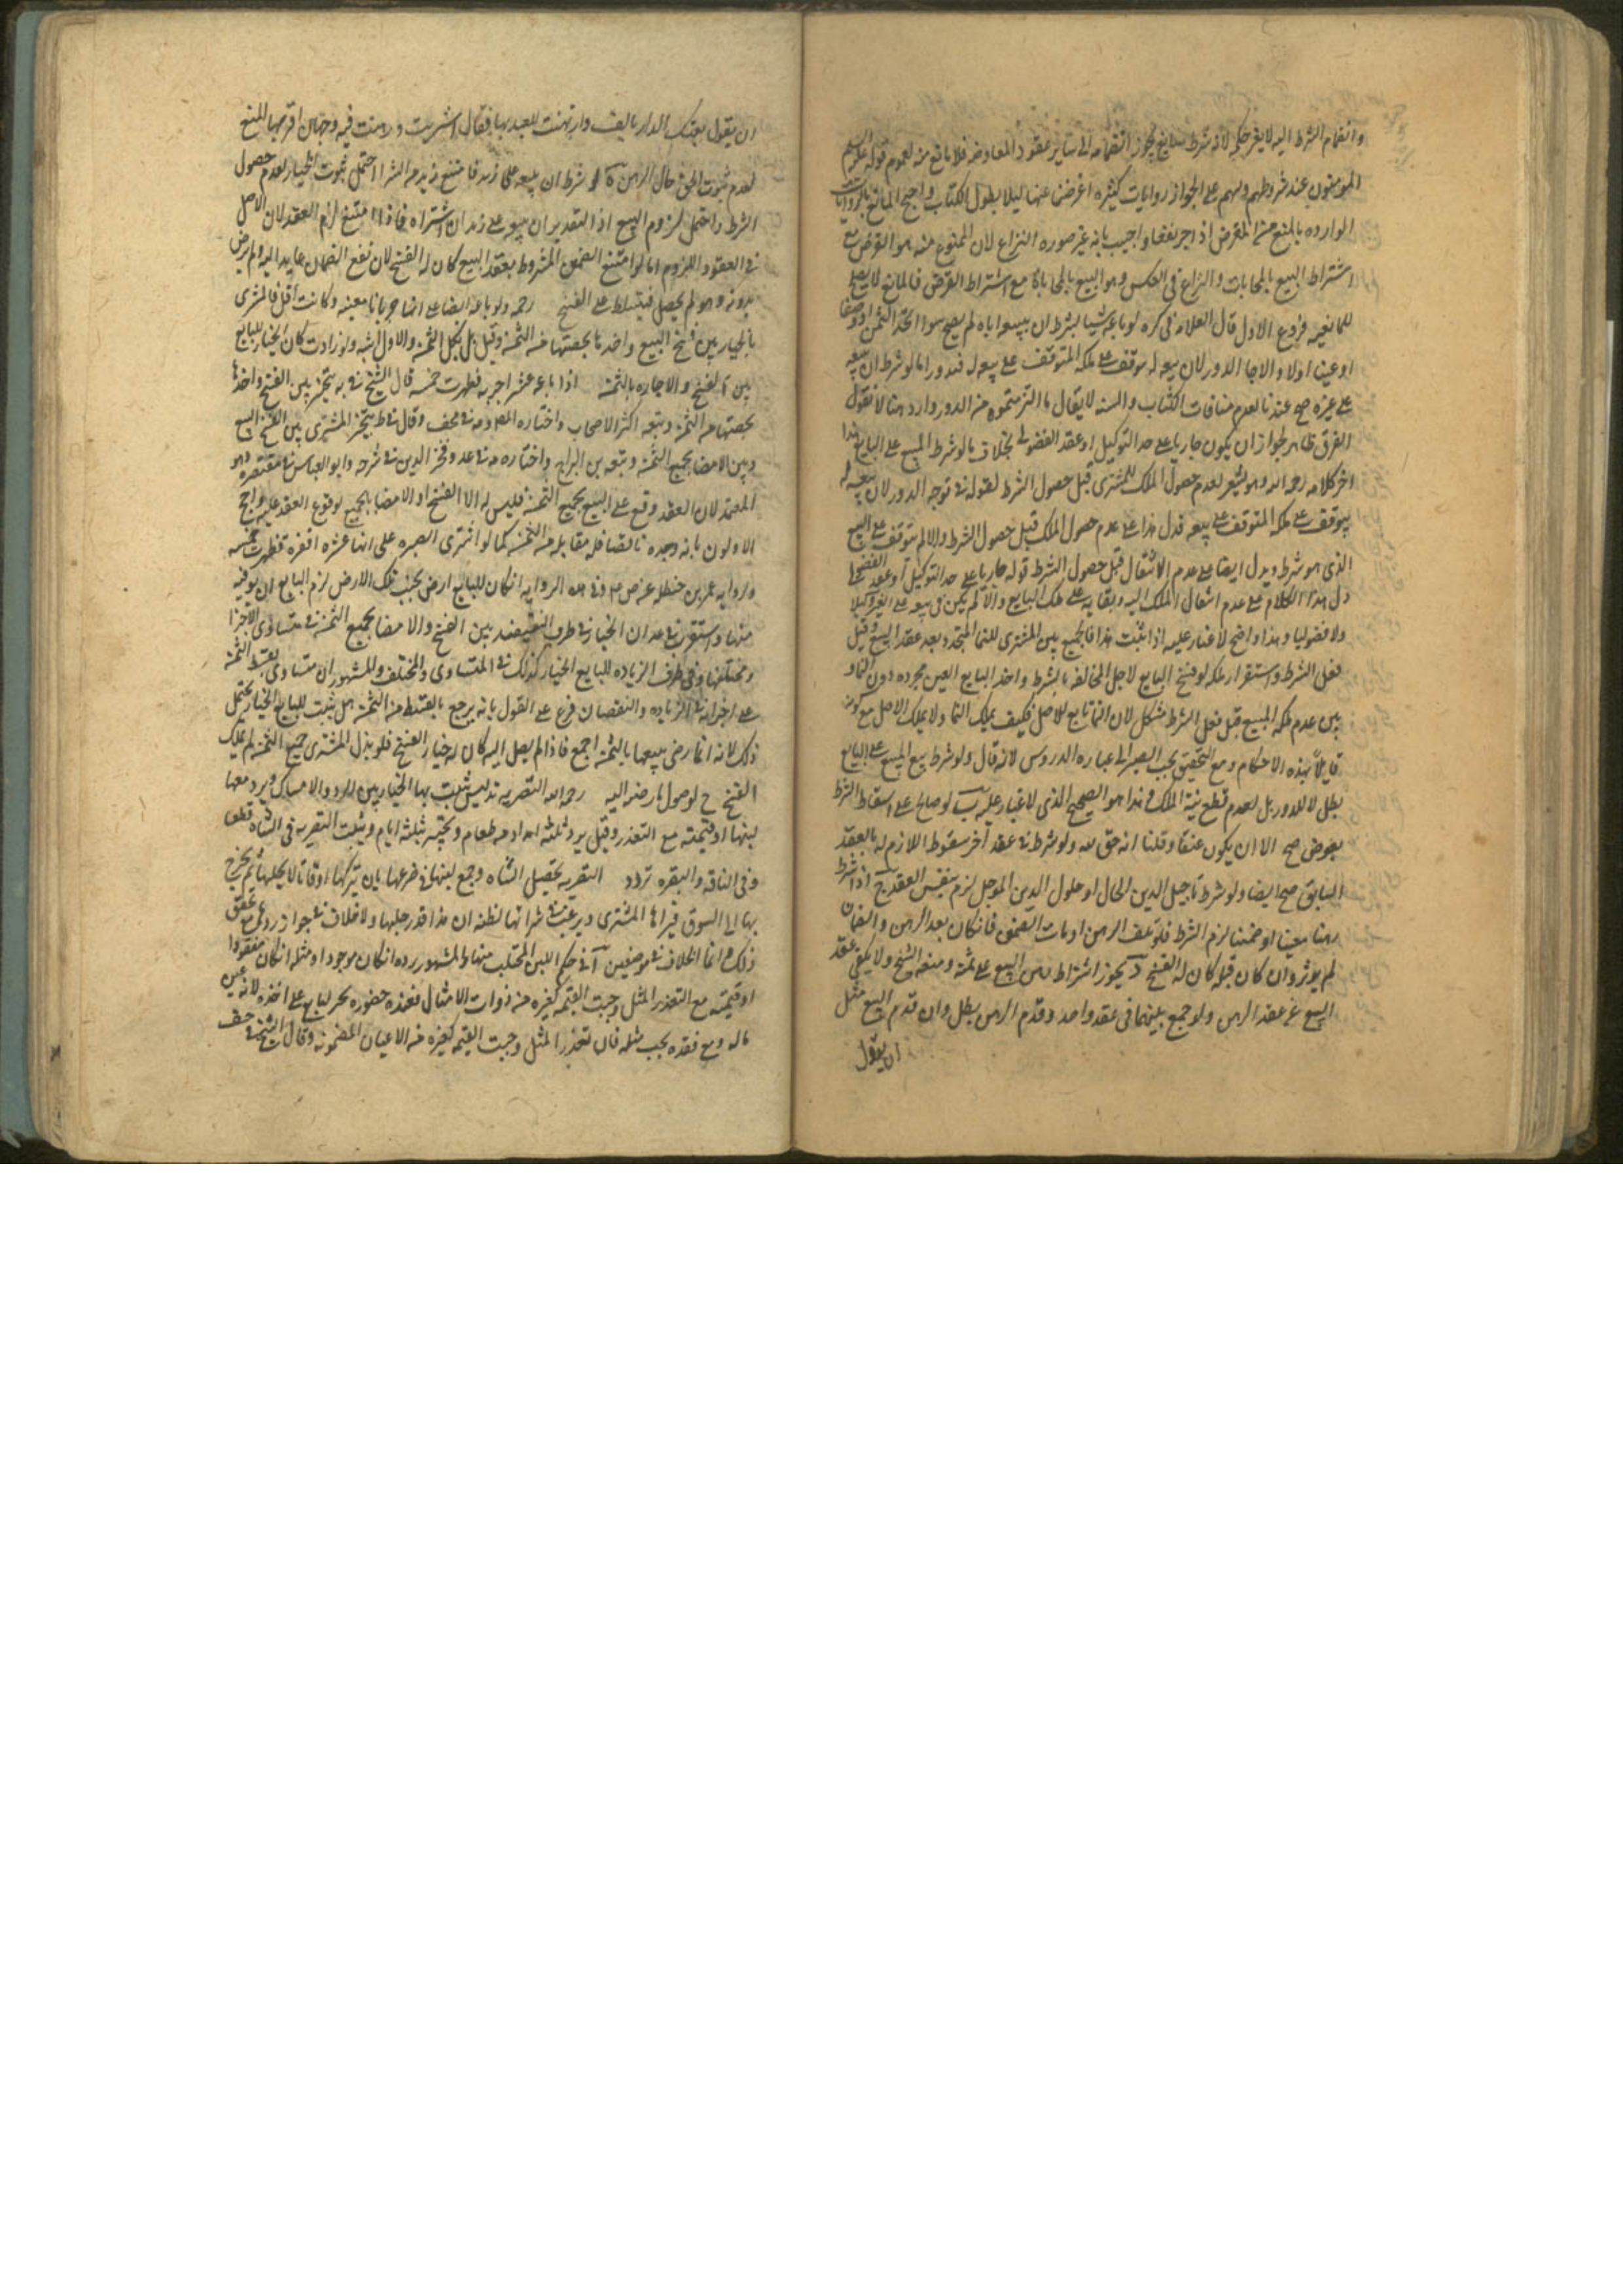 وانضمام الشرط اليه لا يغير حكمه لانه شرط سايغ يجوز انضمامه الى ساير عقود المعاوضه فلا مانع منه لعموم قوله عليه السلم
المومنون عند شروطهم ولهم على الجواز روايات كثيره اعرضنا عنها ليلا يطول الكتاب واحتج المانع بالروايات
الوارده بالمنع من القرض اذا جر نفعا واجيب بانه غير صوره النزاع لان الممنوع منه هو القرض مع
اشتراط البيع بالمحابات والنزاع في العكس وهو البيع بالمحاباة مع اشتراط القرض فالمانع لا يصلح
للمانعيه فروع الاول قال العلامه في كره لو باعه شيا بشرط ان يبيعه اياه لم يصح سوا اتحد الثمن او وصفا
او عينا اولا والا جا الدور لان بيعه له موقف على ملكه المتوقف على بيعه له فيدور اما لو شرط ان يبيعه
على غيره صح عندنا لعدم منافات الكتاب والسنه لا يقال ما التزمتموه من الدور وارد هنا لانا نقول
الفرق ظاهر لجواز ان يكون جاريا على حد التوكيل او عقد الفضولي بخلاف ما لو شرط المبيع على البايع هذا
اخر كلامه رحمه الله وهو يشعر بعدم حصول الملك للمشترى قبل حصول الشرط لقوله في توجه الدور لان بيعه له
يتوقف على ملكه المتوقف على بيعه فدل هذا على عدم حصول الملك قبل حصول الشرط والا لم يتوقف على البيع
الذى هو شرط ويدل ايضا على عدم الانتقال قبل حصول الشرط قوله جاريا على حد التوكيل او عقد الفضولي
دل هذا الكلام على عدم انتقال الملك اليه وبقايه على ملك البايع والا لم يكن في بيعه على الغير وكيلا
ولا فضوليا وهذا واضح لا غبار عليه اذا ثبت هذا فالجمع بين المشترى للنما المتجدد بعد عقد البيع وقبل
فعل الشرط واستقرار ملكه لو فسخ البايع لاجل المخالفه بالشرط واخذ البايع العين مجرده دون النما و
بين عدم ملكه المبيع قبل فعل الشرط مشكل لان النما تابع للاصل فكيف يملك النما ولا يملك الاصل مع كونه
قايلا بهذه الاحكام ومع التحقيق يجب المصير الى عباره الدروس لانه قال ولو شرط بيع المبيع على البايع
بطل لا للدور بل لعدم قطع نية الملك وهذا هو الصحيح الذى لا غبار عليه ب لو صالح على اسقاط الشرط
بعوض صح الا ان يكون عتقا وقلنا انه حق لله ولو شرط في عقد اخر سقوط اللازم له بالعقد
السابق صح ايضا ولو شرط تاجيل الدين الحال او حلول الدين الموجل لزم بنفس العقد ج اذا شرط
رهنا معينا او ضمينا لزم الشرط فلو تلف الرهن او مات الضمين فان كان بعد الرهن والضمان
لم يوثر وان كان قبله كان له الفسخ د يجوز اشتراط رهن المبيع على ثمنه ومنعه الشيخ ولا يكفى عقد
البيع عن عقد الرهن ولو جمع بينهما في عقد واحد وقدم الرهن بطل وان قدم البيع مثل
ان يقول
ان يقول بعتك الدار بالف وارتهنت العبد بها فقال اشتريت ورهنت فيه وجهان اقربها المنع
لعدم ثبوت الحق حال الرهن ه لو شرط ان يبيعه على زيد فامتنع زيد من الشرا احتمل ثبوت الخيار لعدم حصول
الشرط واحتمل لزوم البيع اذ التقدير ان بيعه على زيد ان اشتراه فاذا امتنع لزم العقد لان الاصل
في العقود اللزوم اما لو امتنع الضمين المشروط بعقد البيع كان له الفسخ لان نفع الضمان عايد اليه ولم يرض
بدونه وهو لم يحصل فيتسلط على الفسخ رحمه ولو باعه ارضا على انها جربانا معينه وكانت اقل فالمشترى
بالخيار بين فسخ البيع واخذها بحصتها من الثمن وقيل بل بكل الثمن والاول اشبه ولو زادت كان الخيار للبايع
بين الفسخ والاجازه بالثمن اذا باعه عشر اجربه فظهرت خمسه قال الشيخ في يه يتخير بين الفسخ واخذها
بحصتها من الثمن وتبعه اكثر الاصحاب واختاره المصنف وقال في ط يتخير المشترى بين الفسخ البيع
وبين الامضا بجميع الثمن وتبعه بن البراج واختاره في عد وفخر الدين في شرحه وابو العباس في مقتصره وهو
المعتمد لان العقد وقع على البيع بجميع الثمن فليس له الا الفسخ او الامضا بالجميع لوقوع العقد عليه واحتج
الاولون بانه وجده ناقصا فله مقابله من الثمن كما لو اشترى الصبره على انها عشره اقفزه فظهرت خمسه
ورواية عمر بن حنظله عن ص م وفي هذه الروايه ان كان للبايع ارض بجنب تلك الارض لزم البايع ان يوفيه
منها واستقرب في عد ان الخيار في طرف النقيصه بين الفسخ والامضا بجميع الثمن في متساوى الاجزا
ومختلفها وفي طرف الزياده للبايع الخيار كذلك في المتساوى والمختلف والمشهور ان متساوى يقسط الثمن
على اجزائه في الزياده والنقصان فرع على القول بانه يرجع بالقسط من الثمن هل يثبت للبايع الخيار يحتمل
ذلك لانه انما رضى ببيعها بالثمن اجمع فاذا لم يصل اليه كان له خيار الفسخ فلو بذل المشترى جميع الثمن لم يملك
الفسخ ح لوصول ما رضى اليه رحمه الله التصريه تدليس يثبت بها الخيار بين الرد والامساك ويرد معها
لبنها او قيمته مع التعذر وقيل يرد ثلثه امداد من طعام وتختبر بثلثه ايام ويثبت التصريه في الشاه قطعا
وفي الناقه والبقره تردد التصريه تحفيل الشاه وجمع لبنها في ضرعها بان يتركها اوقاتا لا يحلبها ثم يخرج
بها الى السوق فيراها المشترى ويرغب في شرائها لظنه ان هذا قدر حلبها ولا خلاف في جواز ردها مع تحقق
ذلك وانما الخلاف في موضعين آ في حكم اللبن المحتلب منها والمشهور رده ان كان موجودا ومثله ان كان مفقودا
او قيمته مع التعذر المثل وجبت القيمه كغيره من ذوات الامثال فعند حضوره يجبر البايع على اخذه لانه عين
ماله ومع فقده يجب مثله فان تعذر المثل وجبت القيمه كغيره من الاعيان المضمونه وقال الشيخ في خف